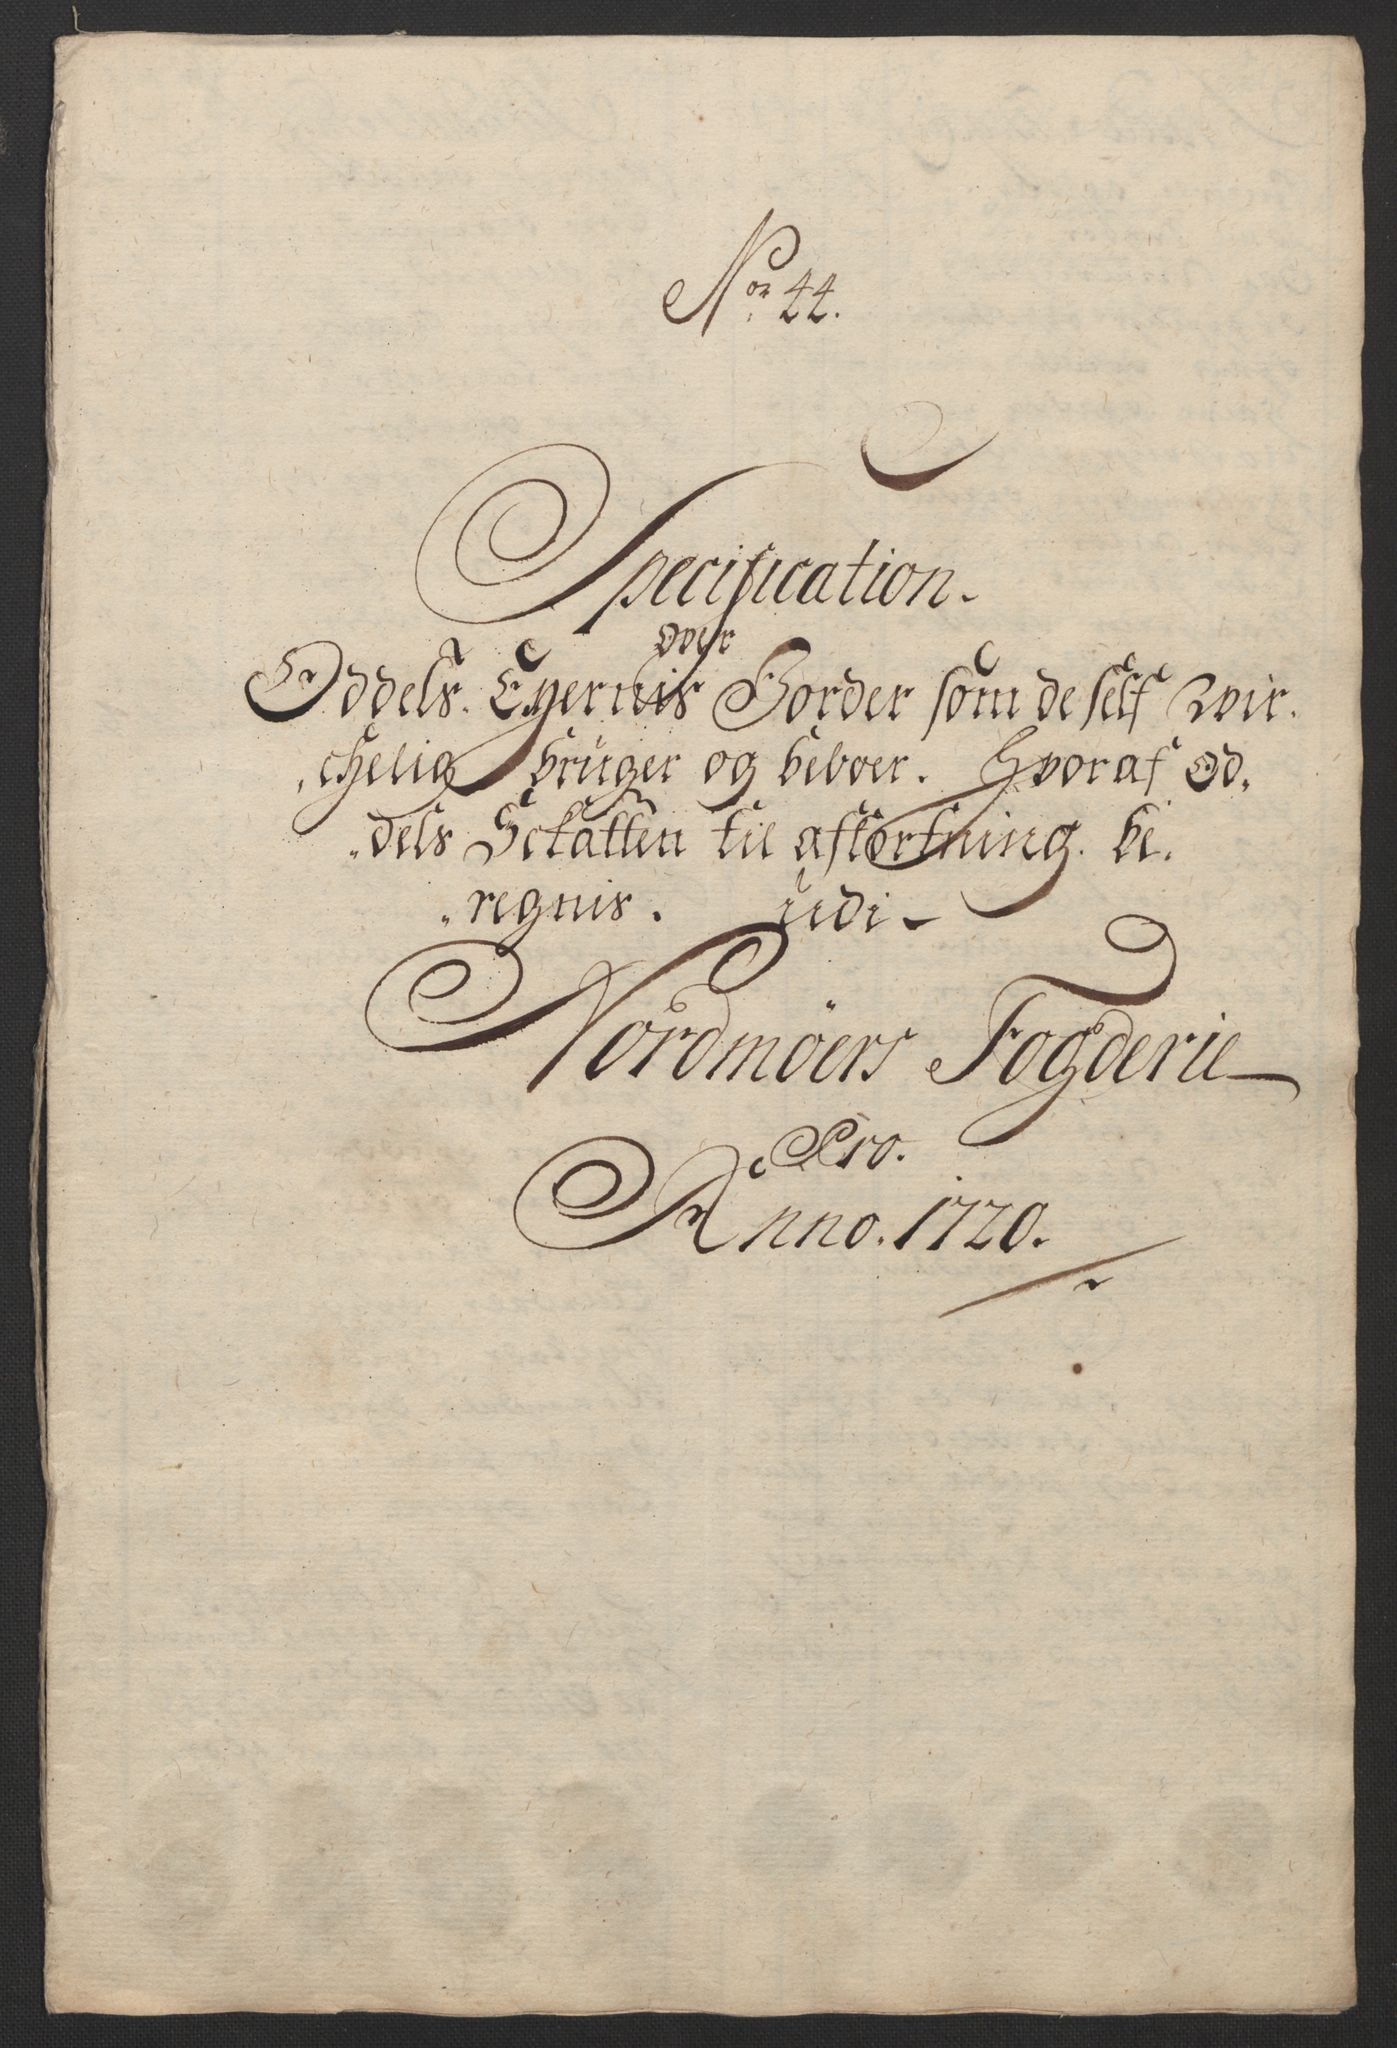 Nor 44.
Specification.
over
Oddels. Eyernis Gorder som de self Wir.
chelig bruger og beboer. Hvoraf Od.
dels Schatten til afkortning. be.
regnis. udi
Nordmöers Fogderie
Pro.
Anno. 1720.